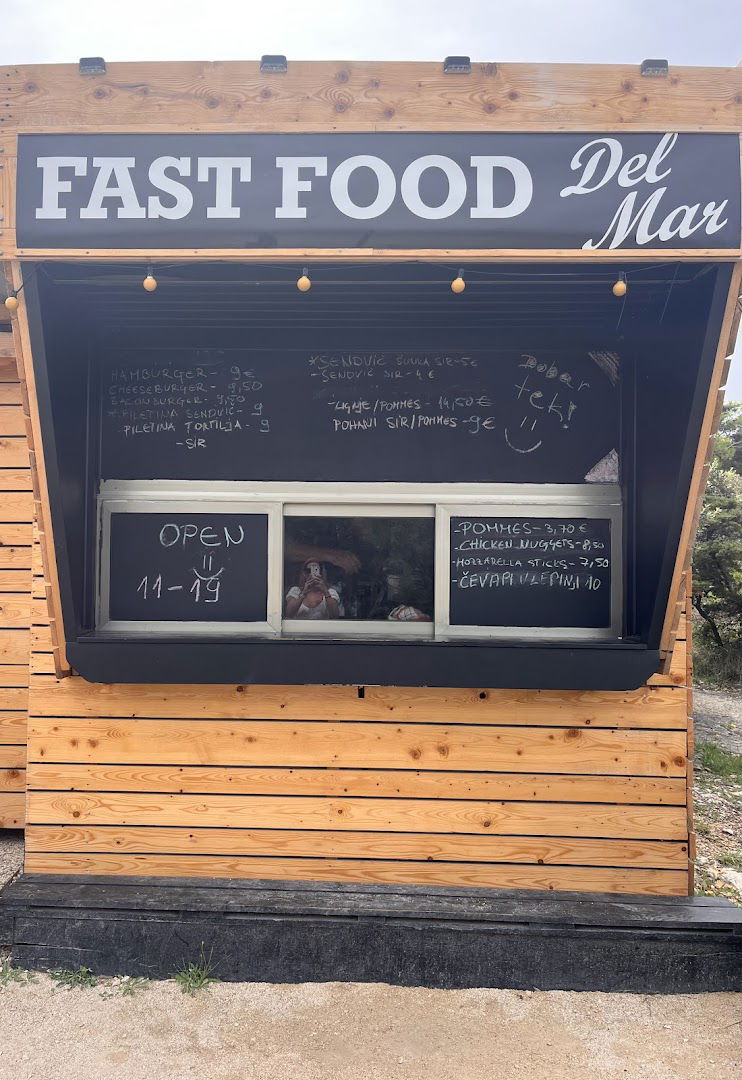 FAST FOOD Del Mar
HAMBURGER - 9€
CHEESEBURGER - 9,50
BACONBURGER - 9,50
*PILETINA SENDVIČ - 9
PILETINA TORTILJA - 9
- SIR
*SENDVIČ ŠUNKA SIR - 5€
- SENDVIČ SIR - 4€
- LIGNJE/POMMES - 14,50€
POHANI SIR/POMMES - 9€
Dobar
tek!
OPEN
11-19
- POMMES - 3,70€
- CHICKEN NUGGETS - 8,50
- MOZZARELLA STICKS - 7,50
- ČEVAPI U LEPINJI 10